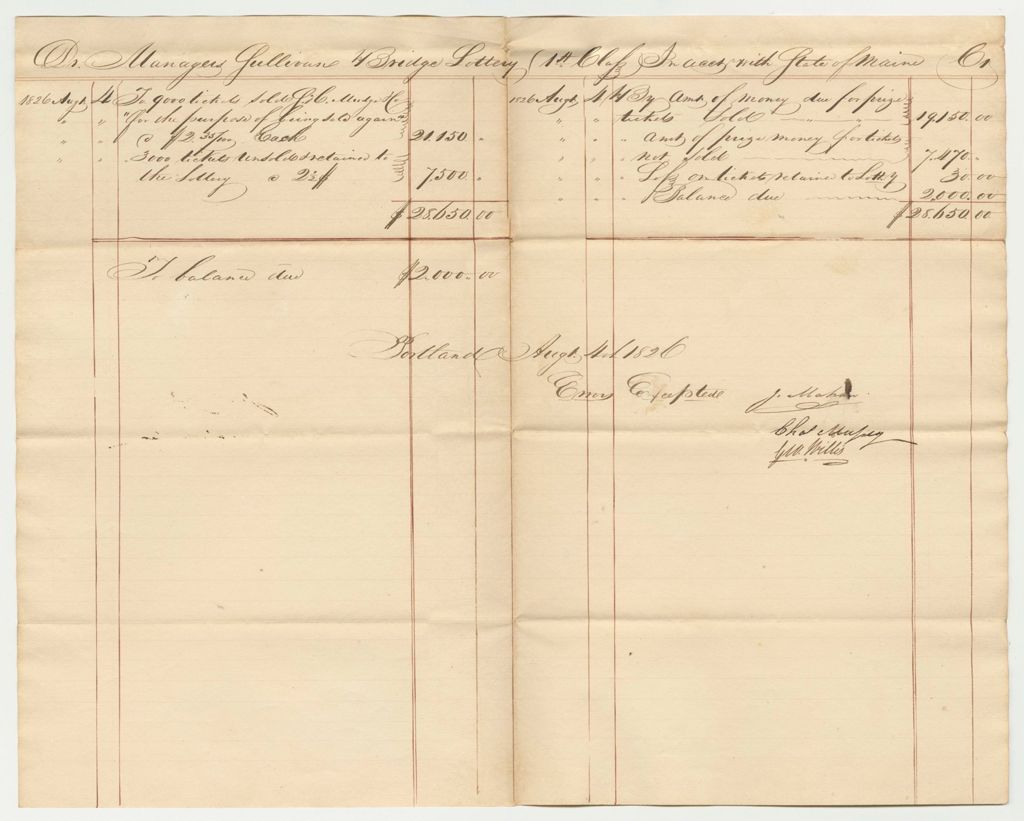 Dr. Managers Sullivans Bridge Lottery (1st Class) In acct with State of Maine Cr
1826 Augt 4 To 9000 tickets sold
" " " for the purpose of being sold again
" " " @ $2 35/100 Each 21.150 "
" " 3000 tickets unsold & retained to
the Lottery @ 2½$ 7.500 "
$28.650.00
To balance due $2.000.00
1826 Augt 4 By Amt of money due for prize
" " " tickets sold " " 19.150.00
" " " Amt of prize money for tickets
" " " not sold 7.470 "
" " " Loss on tickets retained to Lottery 30.00
" " " Balance due 2.000.00
$28.650.00
Portland Augt 4th 1826
Errors Excepted
Chas Mussey
G.W. Willis